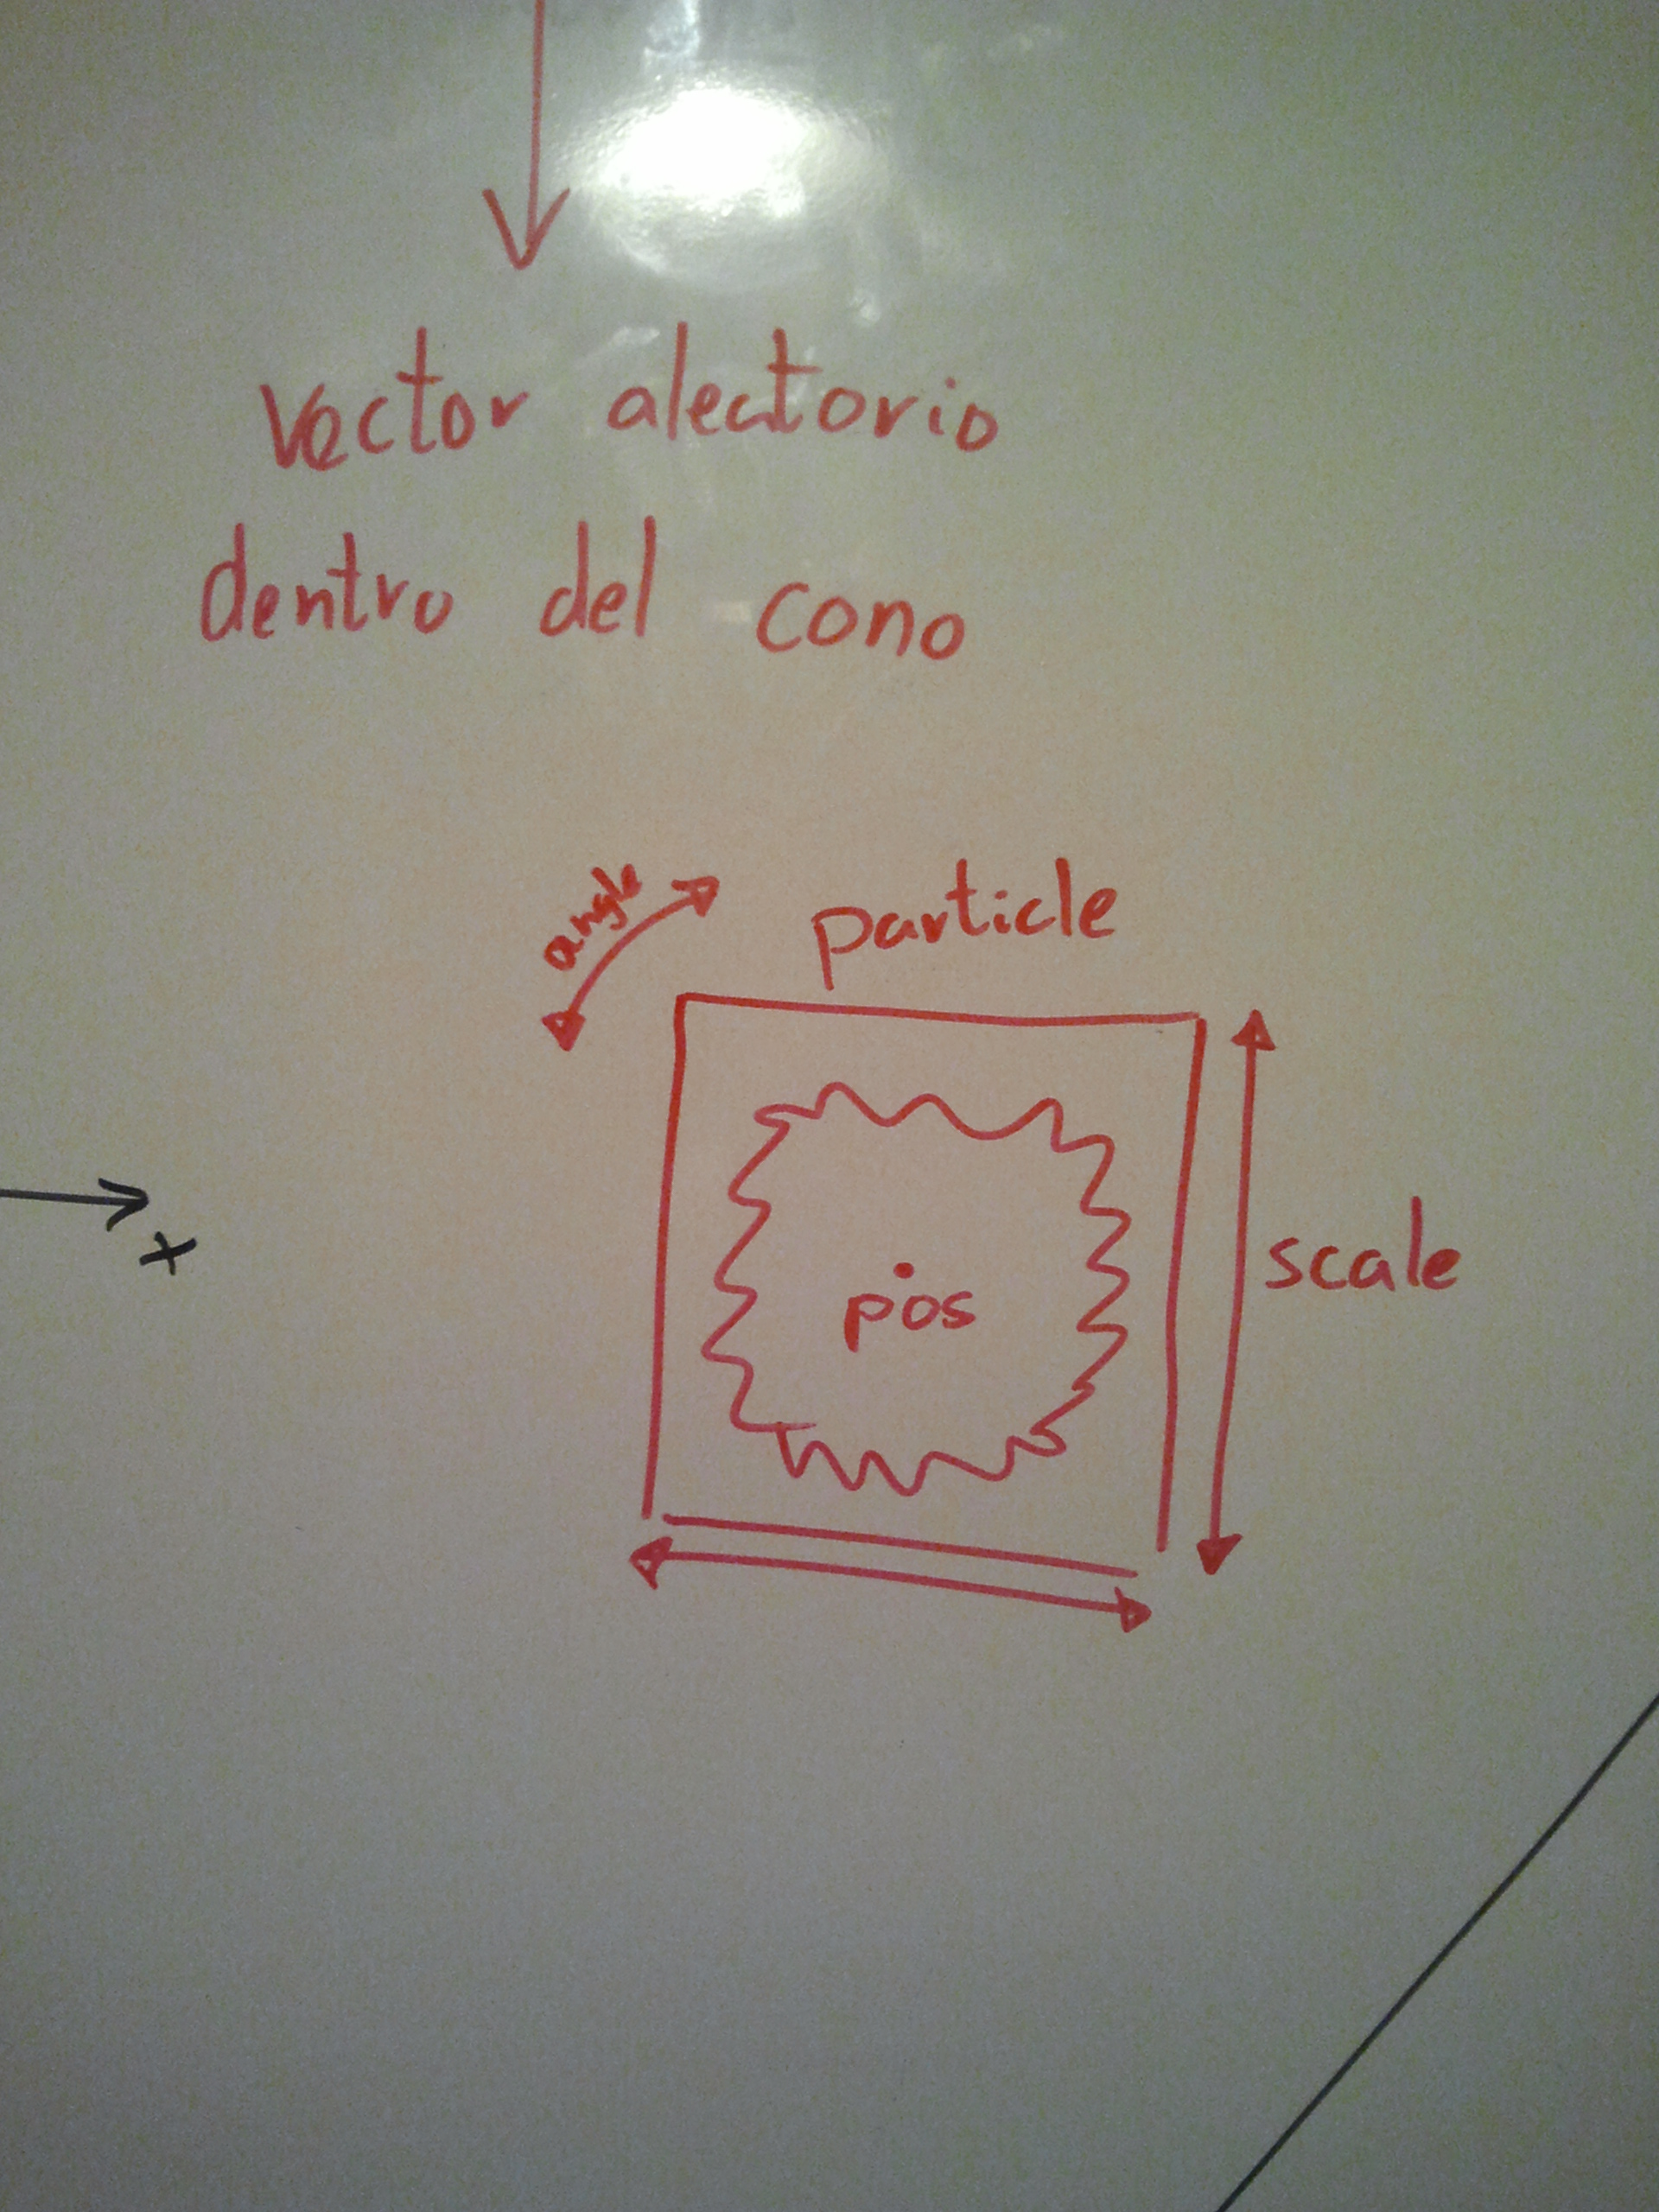 vector aleatorio
dentro del cono
angle
particle
x
pos
scale